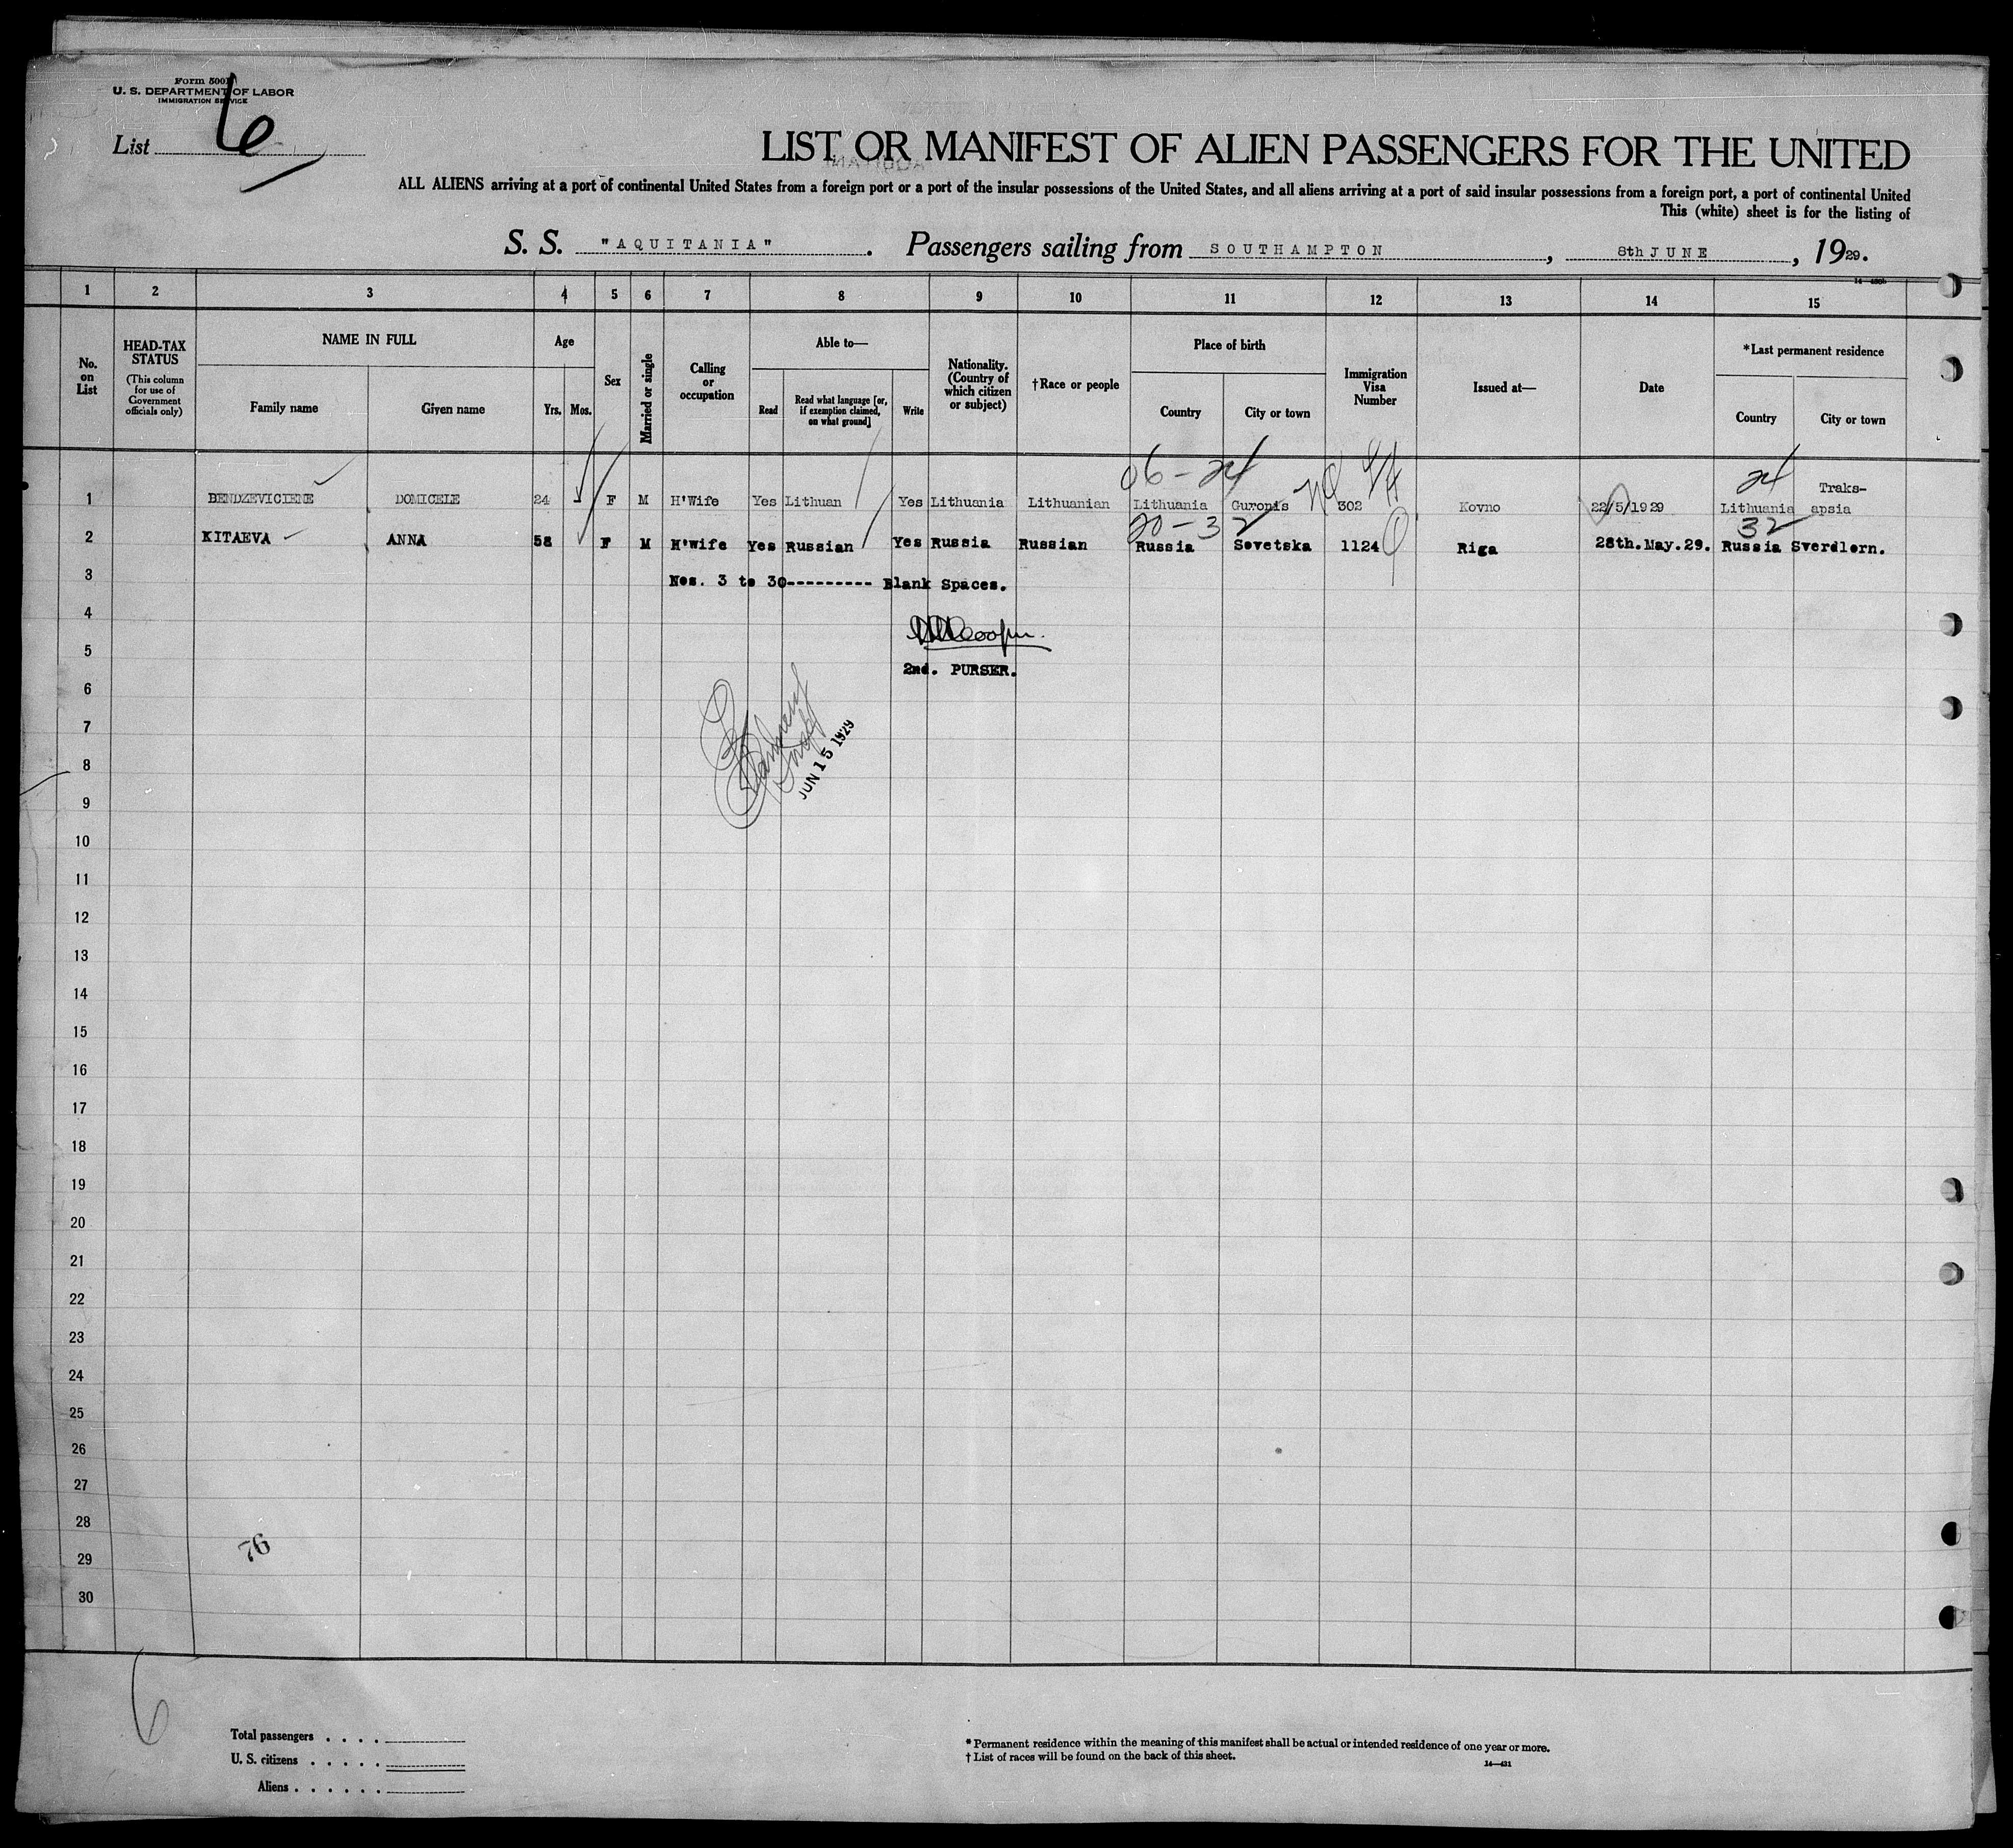 Form 500
U. S. DEPARTMENT OF LABOR
IMMIGRATION SERVICE
List 6
LIST OR MANIFEST OF ALIEN PASSENGERS FOR THE UNITED
ALL ALIENS arriving at a port of continental United States from a foreign port or a port of the insular possessions of the United States, and all aliens arriving at a port of said insular possessions from a foreign port, a port of continental United
This (white) sheet is for the listing of
S. S. "AQUITANIA". Passengers sailing from SOUTHAMPTON, 8th JUNE, 1929.
1 2 3 4 5 6 7 8 9 10 11 12 13 14 15
No. on List
HEAD-TAX STATUS
(This column for use of Government officials only)
NAME IN FULL
Family name
Given name
Age
Yrs. Mos.
Sex
Married or single
Calling or occupation
Able to—
Read
Read what language [or, if exemption claimed, on what ground]
Write
Nationality. (Country of which citizen or subject)
†Race or people
Place of birth
Country
City or town
Immigration Visa Number
Issued at—
Date
*Last permanent residence
Country
City or town
06-24 24
1 BENDZEVICIENE DOMICELE 24 - F M H'Wife Yes Lithuan Yes Lithuania Lithuanian Lithuania Guronis 302 Kovno 22/5/1929 Lithuania Traks-apsia
20-32 32
2 KITAEVA ANNA 58 F M H'wife Yes Russian Yes Russia Russian Russia Sovetska 1124 Riga 28th.May.29. Russia Sverdlorn.
3 Nos. 3 to 30--------- Blank Spaces.
4
5
2nd. PURSER.
6
7
JUN 15 1929
8
9
10
11
12
13
14
15
16
17
18
19
20
21
22
23
24
25
26
27
28
76
29
30
6
Total passengers . . . .
U. S. citizens . . . . .
Aliens . . . . . .
* Permanent residence within the meaning of this manifest shall be actual or intended residence of one year or more.
† List of races will be found on the back of this sheet.
14—431